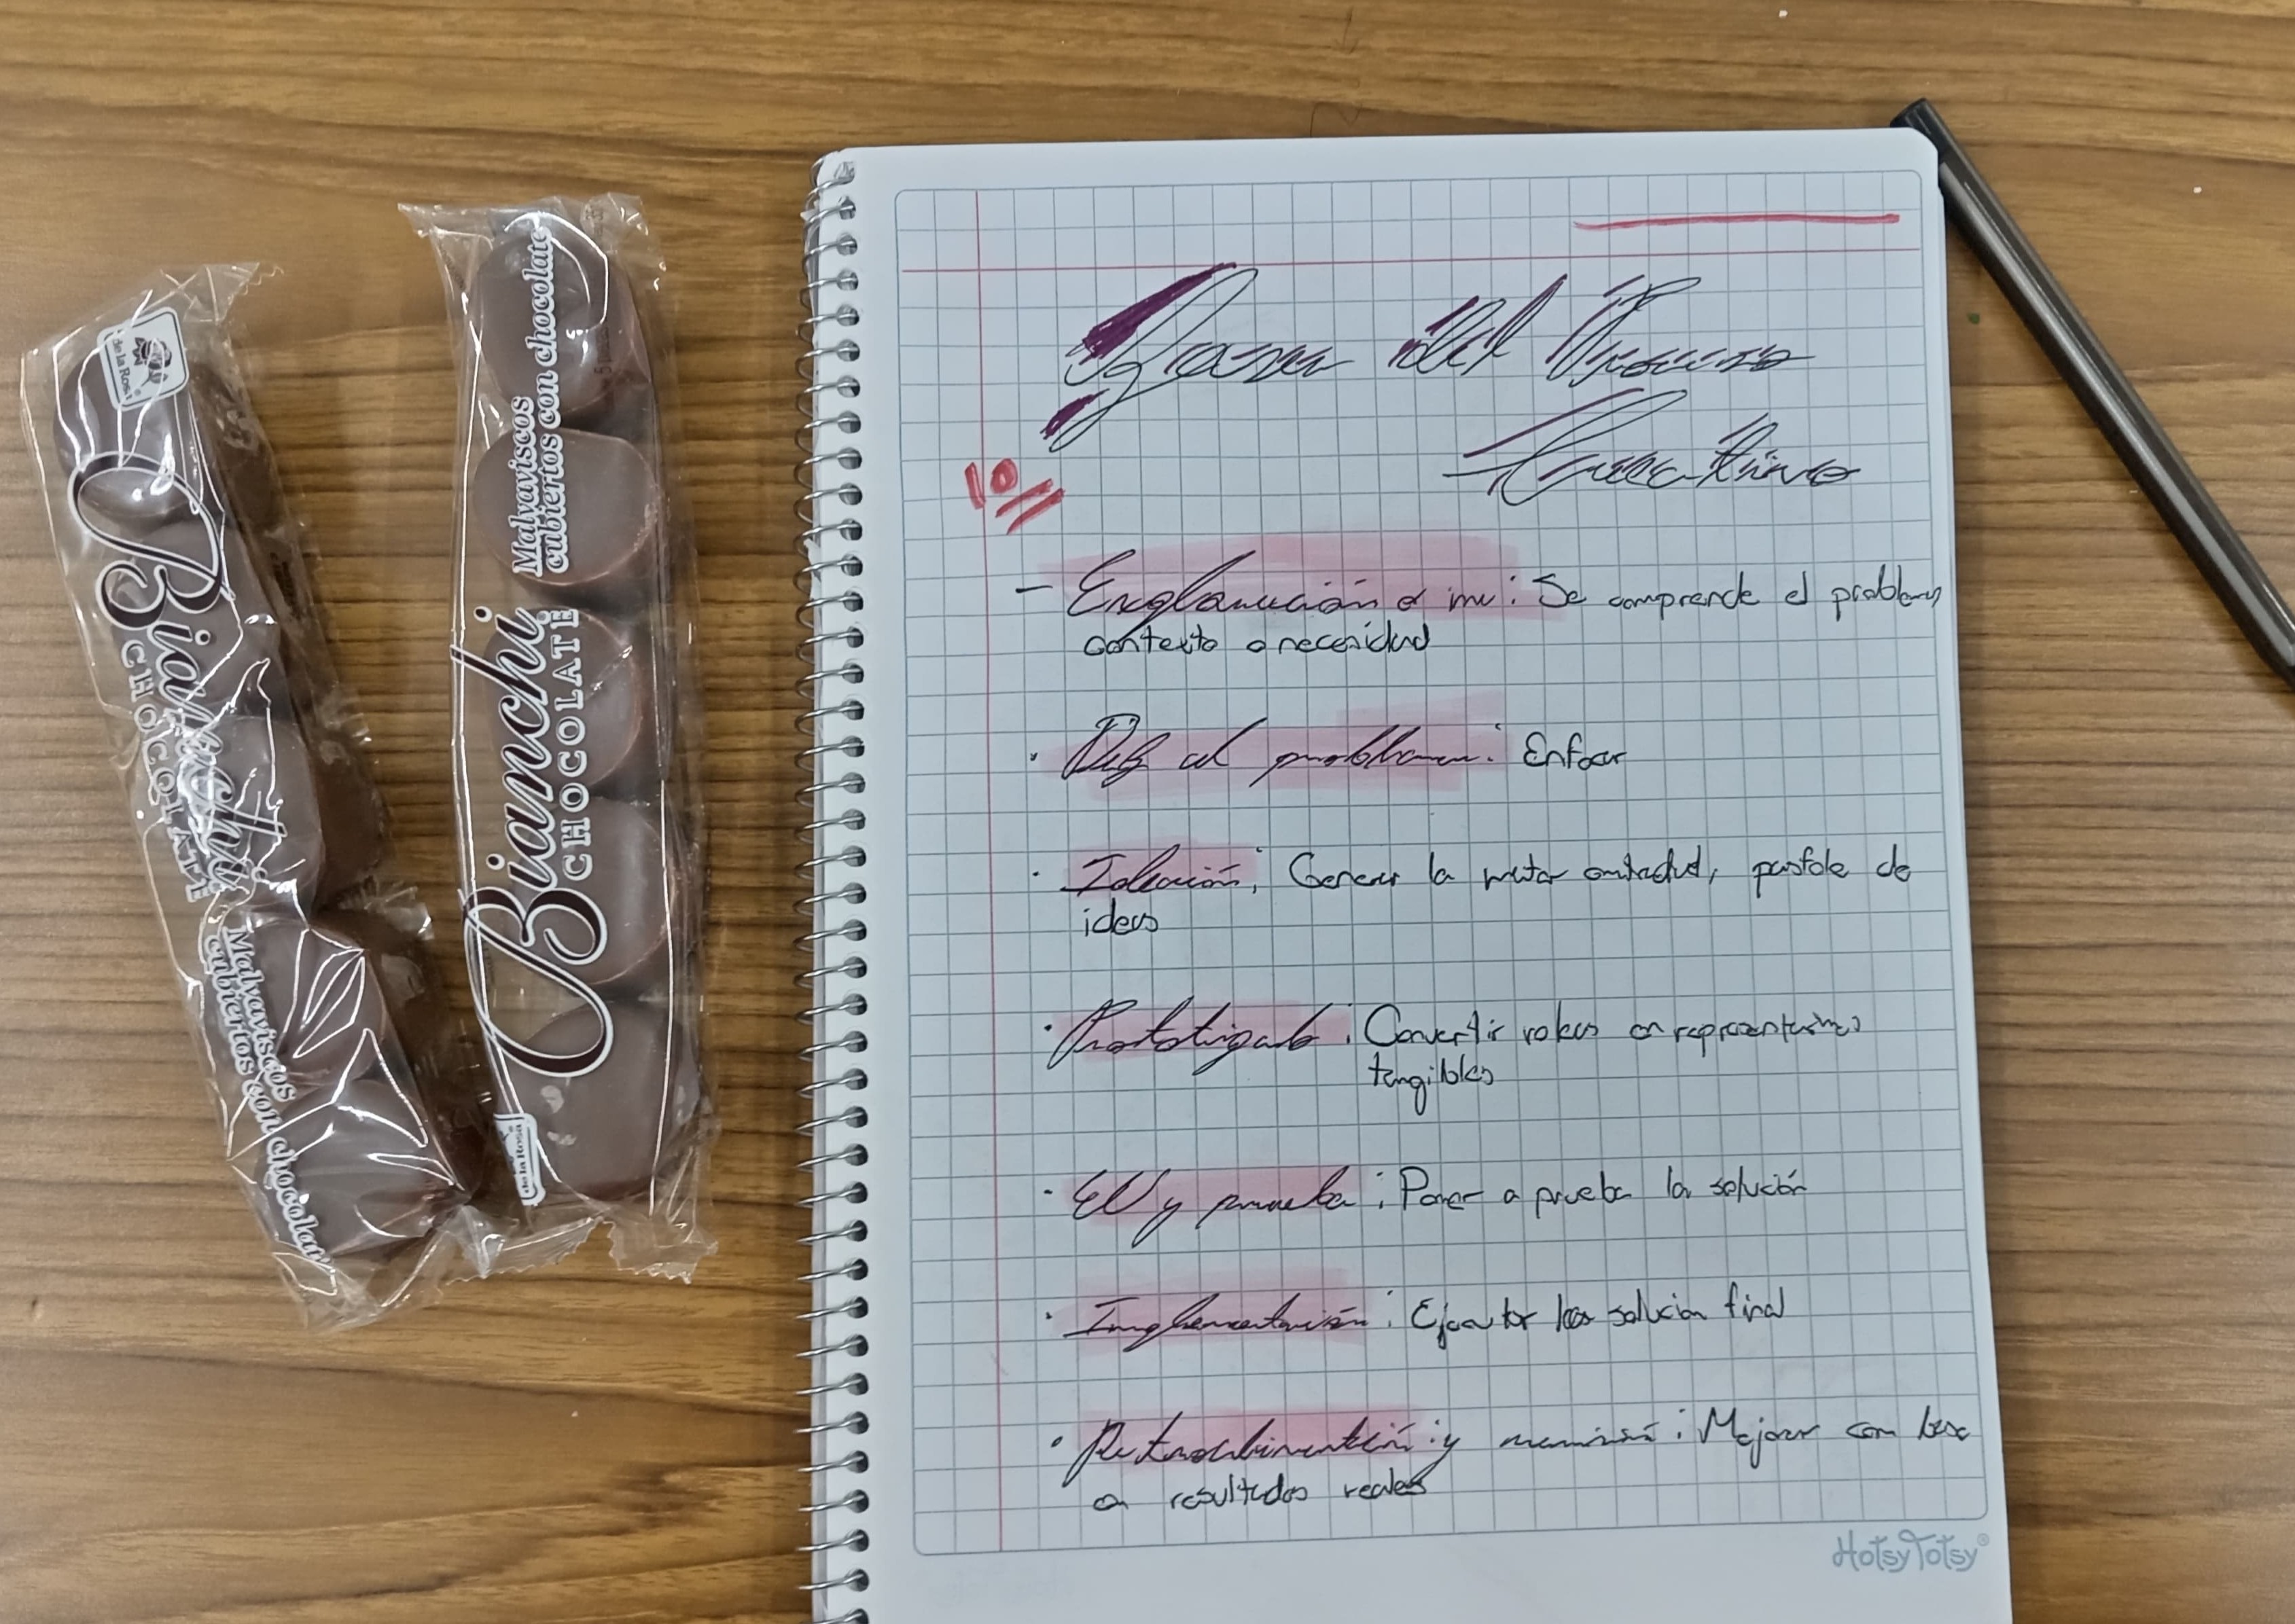 de la Rosa
Bianchi
CHOCOLATE
Malvaviscos
cubiertos con chocolate
Malvaviscos
cubiertos con chocolate
Bianchi
CHOCOLATE
de la Rosa
del Proceso
Creativo
10
- Exploración e inv: Se comprende el problema
contexto o necesidad
· Def del problema: Enfocar
· Ideación: Generar la mayor cantidad, posible de
ideas
· Prototipado: Convertir en representaciones
tangibles
· EV y prueba: Poner a prueba la solución
· Implementación: Ejecutar la solución final
· Retroalimentación y: Mejorar con base
en resultados reales
HotsyTotsy